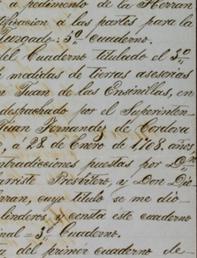 a pedimento de la Herran
tificacion á las partes para la
Juzgado. 3º Cuaderno.
del Cuaderno titulado el 3º
medidas de tierras asesorias
Juan de las Ensinillas, en
despachado por el Superinten-
Juan Fernandz de Cordova
, á 28 de Enero de 1708. años
ntradiciones puestas por Dn
arriste Presbitero, á Don Die
rran, cuyo titulo se me dio
linderos y consta este cuaderno
nal = 3º Cuaderno.
del primer cuaderno de-